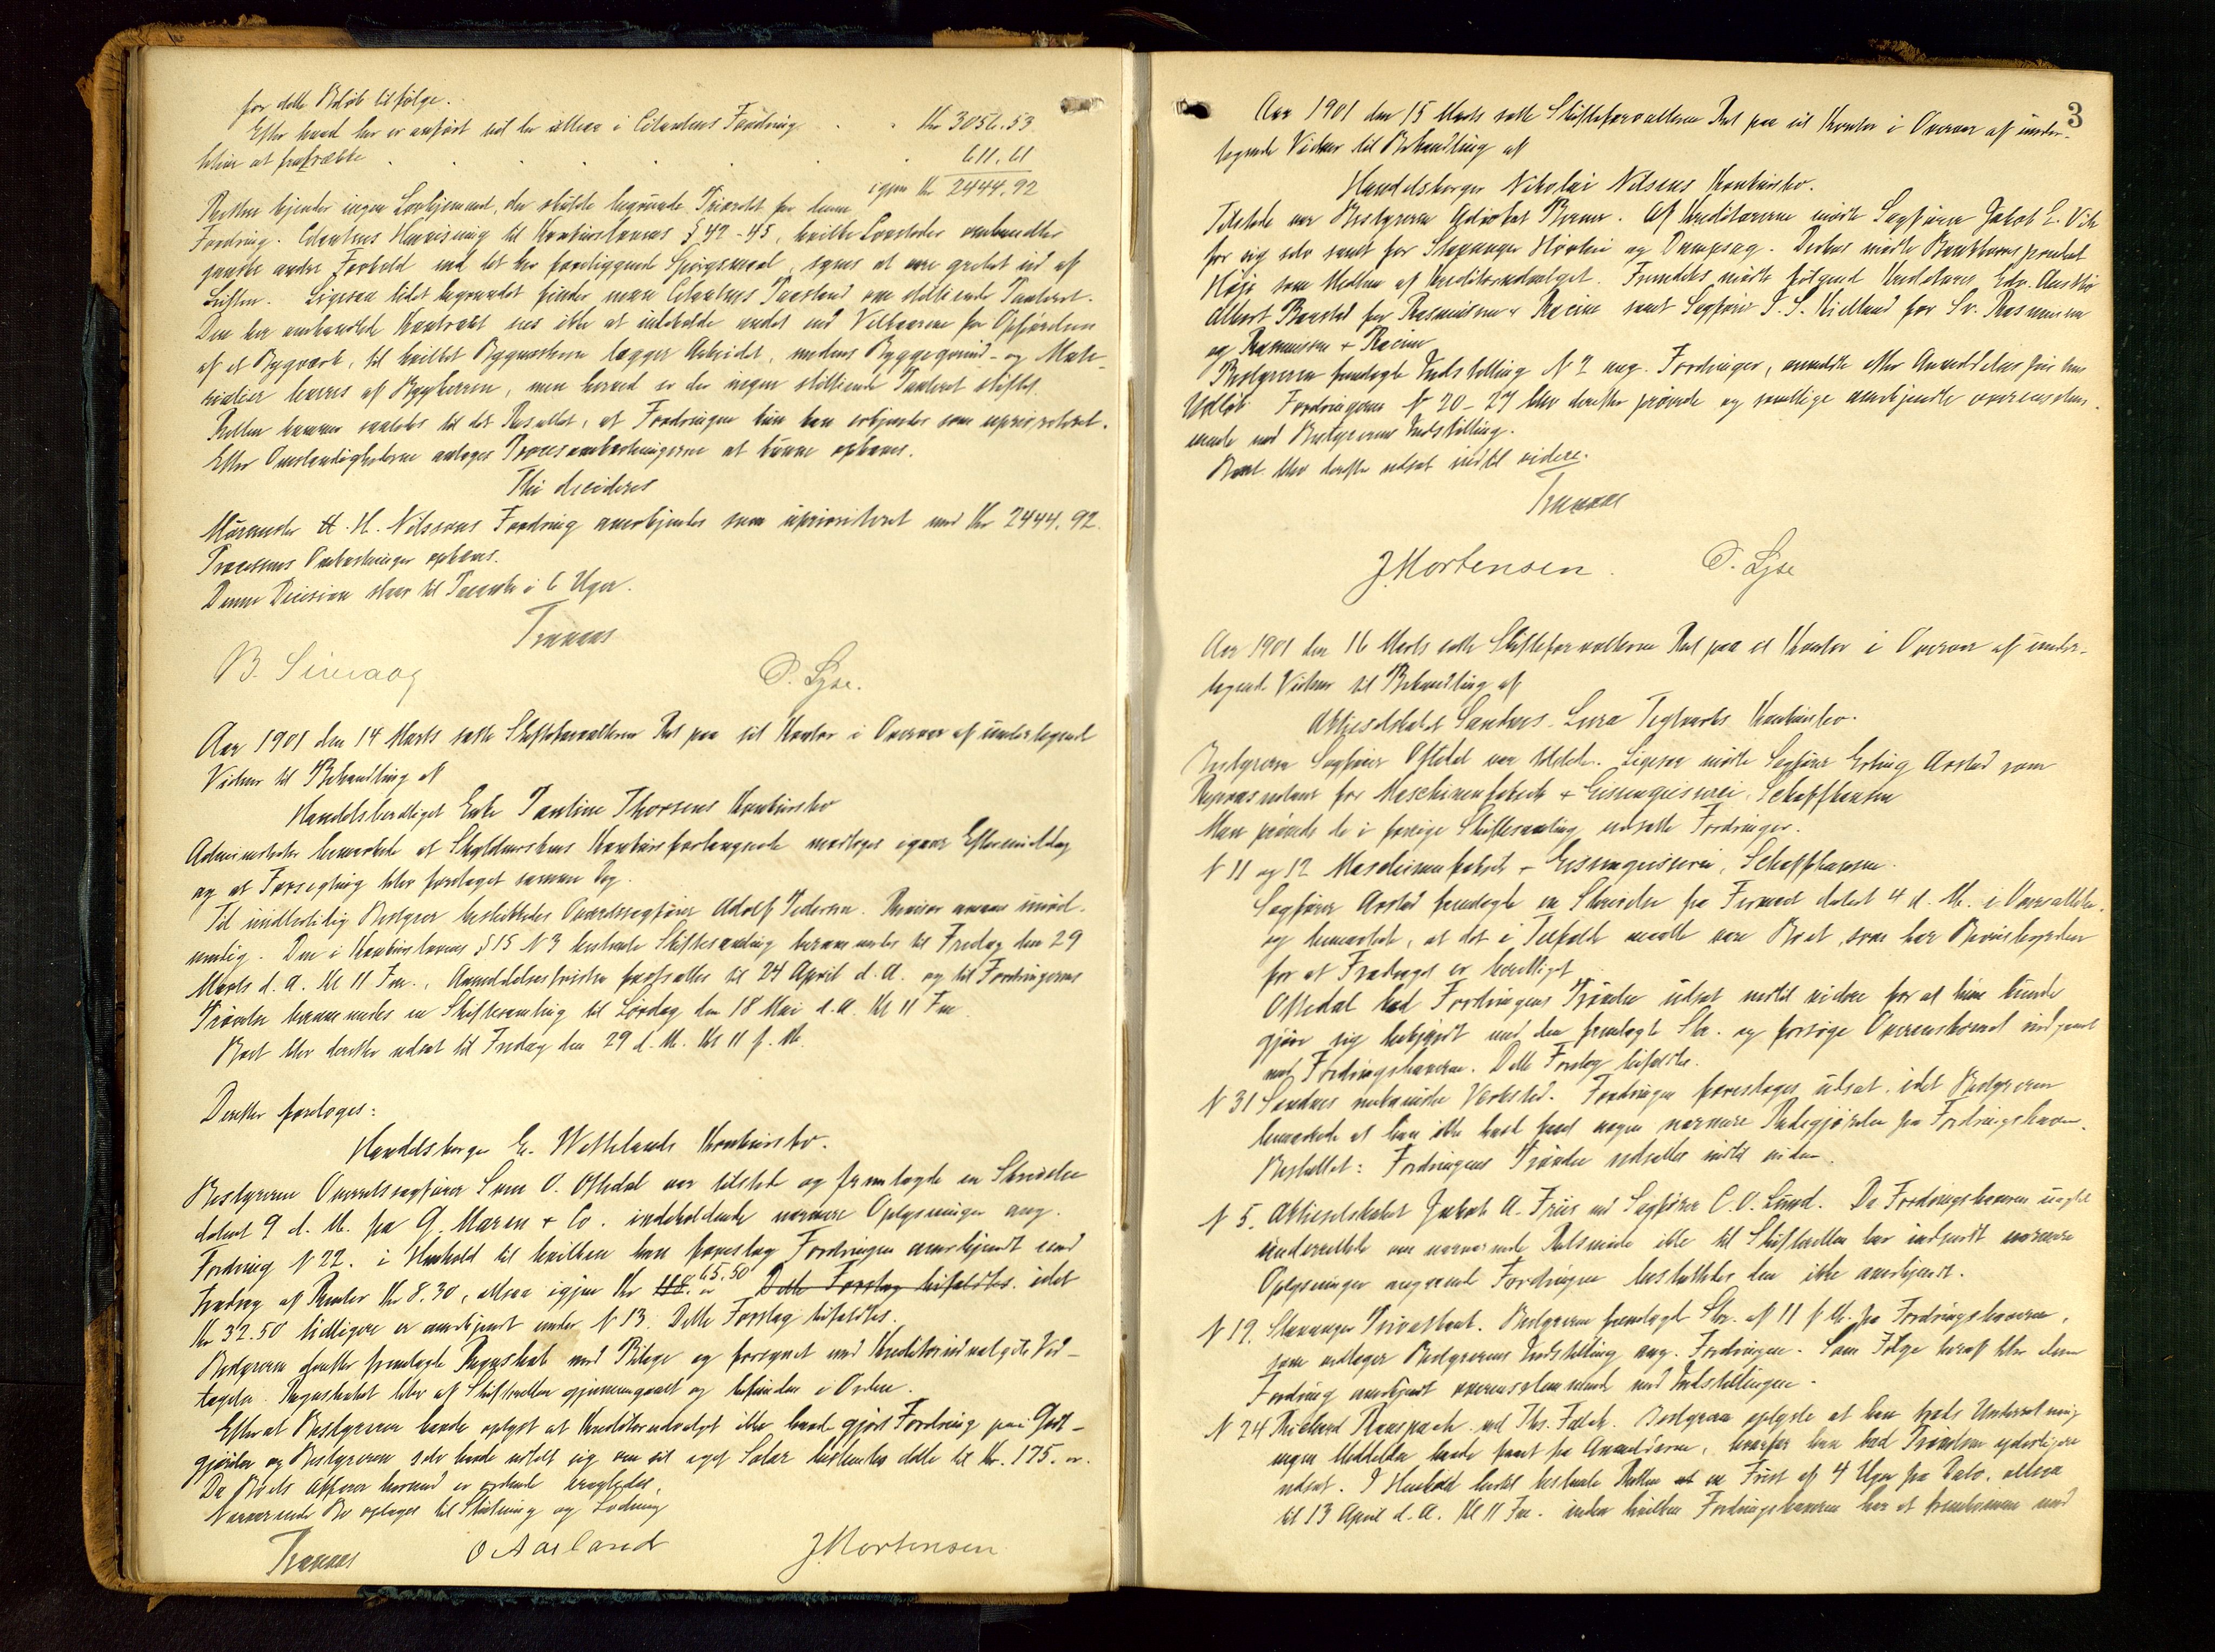 for dette Beløb tilfølge.
Efter hvad her er anført vil der altsaa i Citantens Fordring . . Kr 3056.53
blive at fratrække . . . . . . 611.61
igjen Kr 2444.92
Retten kjender ingen Lovhjemmel, der skulde begrunde Prioritet for denne
Fordring. Citantens Henvisning til Konkurslovens § 42-45, hvilke Lovsteder omhandler
ganske andre Forhold end det her foreliggende Spørgsmaal, synes at være grebet ud af
Luften. Ligesaa lidet begrundet finder man Citantens Paastand om stiltiende Panteret.
Den her omhandlede Kontrakt sees ikke at indeholde andet end Vilkaarene for Opførelsen
af et Bygværk, til hvilket Bygmesteren lægger Arbeidet, medens Byggegrund- og Mate-
rialier leveres af Bygherren, men herved er der ingen stiltiende Panteret stiftet.
Retten kommer saaledes til det Resultat, at Fordringen kun kan erkjendes som uprioriteret.
Efter Omstændighederne antages Procesomkostningerne at kunne ophæves.
Thi decideres
Murmester H. H. Nilssens Fordring anerkjendes som uprioriteret med Kr 2444.92.
Processens Omkostninger ophæves.
Denne Decision staar til Paaanke i 6 Uger.
Tranaas
B. Simaag O. Lyse.
Aar 1901 den 14 Marts satte Skifteforvalteren Ret paa sit Kontor i Overvær af undertegnede
Vidner til Behandling af
Handelsberettiget Enke Pauline Thorsens Konkursbo
Administrator bemærkede at Skyldnerskens Konkursforlangende modtoges igaar Eftermiddag
og at Forsegling blev foretaget samme Dag.
Til midlertidig Bestyrer beskikkedes Overretssagfører Adolf Pedersen. Revisor ansaaes unød-
vendig. Den i Konkurslovens § 15 N 3 bestemte Skiftesamling berammedes til Fredag den 29
Marts d. A. Kl 11 Fm., Anmeldelsesfristen fastsattes til 24 April d. A. og til Fordringernes
Prøvelse berammedes en Skiftesamling til Lørdag den 18 Mai d. A. Kl 11 Fm
Boet blev derefter udsat til Fredag den 29 d. M. Kl 11 f. M.
Derefter foretoges:
Handelsborger E. Wetteland's Konkursbo.
Bestyreren Overretssagfører Sven O. Oftedal var tilstede og fremlagde en Skrivelse
dateret 9 d. M. fra G. Maren & Co. indeholdende nærmere Oplysninger ang.
Fordring N 22. i Henhold til hvilken han foreslog Fordringen anerkjendt med
Fradrag af Renter Kr 8.30, altsaa igjen Kr 65.50 Dette Forslag bifaldtes. idet
Kr 32.50 tidligere er anerkjendt under N 13. Dette Forslag bifaldtes.
Bestyreren derefter fremlagte Regnskab med Bilage og forsynet med Kreditorudvalgets Ved-
tagelse. Regnskabet blev af Skifteretten gjennemgaaet og befunden i Orden.
Efterat Bestyreren havde oplyst at Kreditorudvalget ikke havde gjort Fordring paa Godt-
gjørelse og Bestyreren selv havde udtalt sig om sit eget Salær bestemtes dette til Kr. 175. "
Da Boets Affærer hermed er ordnede
Nærværende Bo optages til Slutning og Lodning
Tranaas O Aarland J Mortensen
3
Aar 1901 den 15 Marts satte Skifteforvalteren Ret paa sit Kontor i Overvær af under-
tegnede Vidner til Behandling af
Handelsborger Nikolai Nilsens Konkursbo.
Tilstede var Bestyreren Advokat Berner. Af Kreditorerne mødte Sagfører Jakob E. Vik
for sig selv samt for Stavanger Høvleri og Dampsag. Derhos mødte
som Medlem af Kreditorudvalget. Fremdeles mødte følgende Kreditorer Edv.
Albert for Rasmussen & Racine samt Sagfører S. S. Kielland for Sv. Rasmussen
og Rasmussen & Racine
Bestyreren fremlagte Indstilling N 2 ang. Fordringer, anmeldte efter Anmeldelsesfristens
Udløb. Fordringerne N 20-27 blev derefter prøvede og samtlige anerkjendte overensstem-
mende med Bestyrerens Indstilling.
Boet blev derefter udsat indtil videre.
Tranaas
J Mortensen. O. Lyse
Aar 1901 den 16 Marts satte Skifteforvalteren Ret paa sit Kontor i Overvær af under-
tegnede Vidner til Behandling af
Aktieselskabet Sandnes-Lura Teglværks Konkursbo.
Bestyreren Sagfører Oftedal var tilstede. Ligesaa mødte Sagfører Erling Aarstad som
Repræsentant for Maschinenfabrik & Eisengiesserei, Schaffhausen
Man prøvede de i forrige Skiftesamling udsatte Fordringer.
N 11 og 12 Maschinenfabrik & Eisengiesserei, Schaffhausen.
Sagfører Aarstad fremlagde en Skrivelse fra Firmaet dateret 4 d. M. i Oversættelse
og bemærkede, at det i Tilfælde maatte være Boet, som har Bevisbyrden
for at Fradraget er berettiget.
Oftedal bad Fordringens Prøvelse udsat indtil videre for at han kunde
gjøre sig bekjendt med den fremlagte Skr. og forsøge Overenskomst indgaaet
med Fordringshaveren. Dette Forslag bifaldtes.
N 31 Sandnes mekaniske Verksted. Fordringen foresloges udsat, idet Bestyreren
bemærkede at han ikke havde faaet nogen nærmere Redegjørelse fra Fordringshaveren.
Besluttet: Fordringens Prøvelse udsættes indtil videre.
N 5. Aktieselskabet Jakob A. Friis ved Sagfører C. O. Lund. Da Fordringshaveren uagtet
underrettet om nærværende Retsmøde ikke til Skifteretten har indsendt nærmere
Oplysninger angaaende Fordringen besluttedes den ikke anerkjendt.
N 19. Stavanger Privatbank. Bestyreren fremlagde Skr. af 11 f. M. fra Fordringshaveren,
som vedtager Bestyrerens Indstilling ang. Fordringen. Som Følge heraf blev denne
Fordring anerkjendt overensstemmende med Indstillingen.
N 24 Richard ved Ths. Falck. Bestyreren oplyste at han trods Underretning
ingen Meddelelse havde faaet fra Anmelderen, hvorfor han bad Prøvelsen yderligere
udsat. I Henhold hertil bestemte Retten en Frist af 4 Uger fra Dato, altsaa
til 13 April d. A. Kl 11 Fm. inden hvilken Fordringshaveren har at fremkomme med